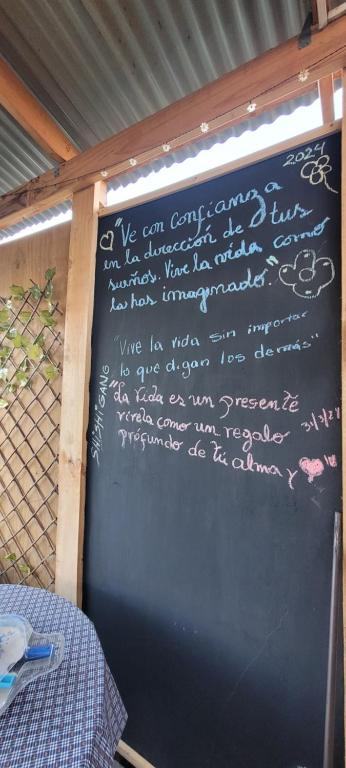 2024
"Ve con Confianza a
en la dirección de tus
sueños. Vive la vida como
la has imaginado."
"Vive la vida sin importar
lo que digan los demás"
"La vida es un presente
vívela como un regalo
profundo de tú alma y
31/3/24
SHISHIGANG